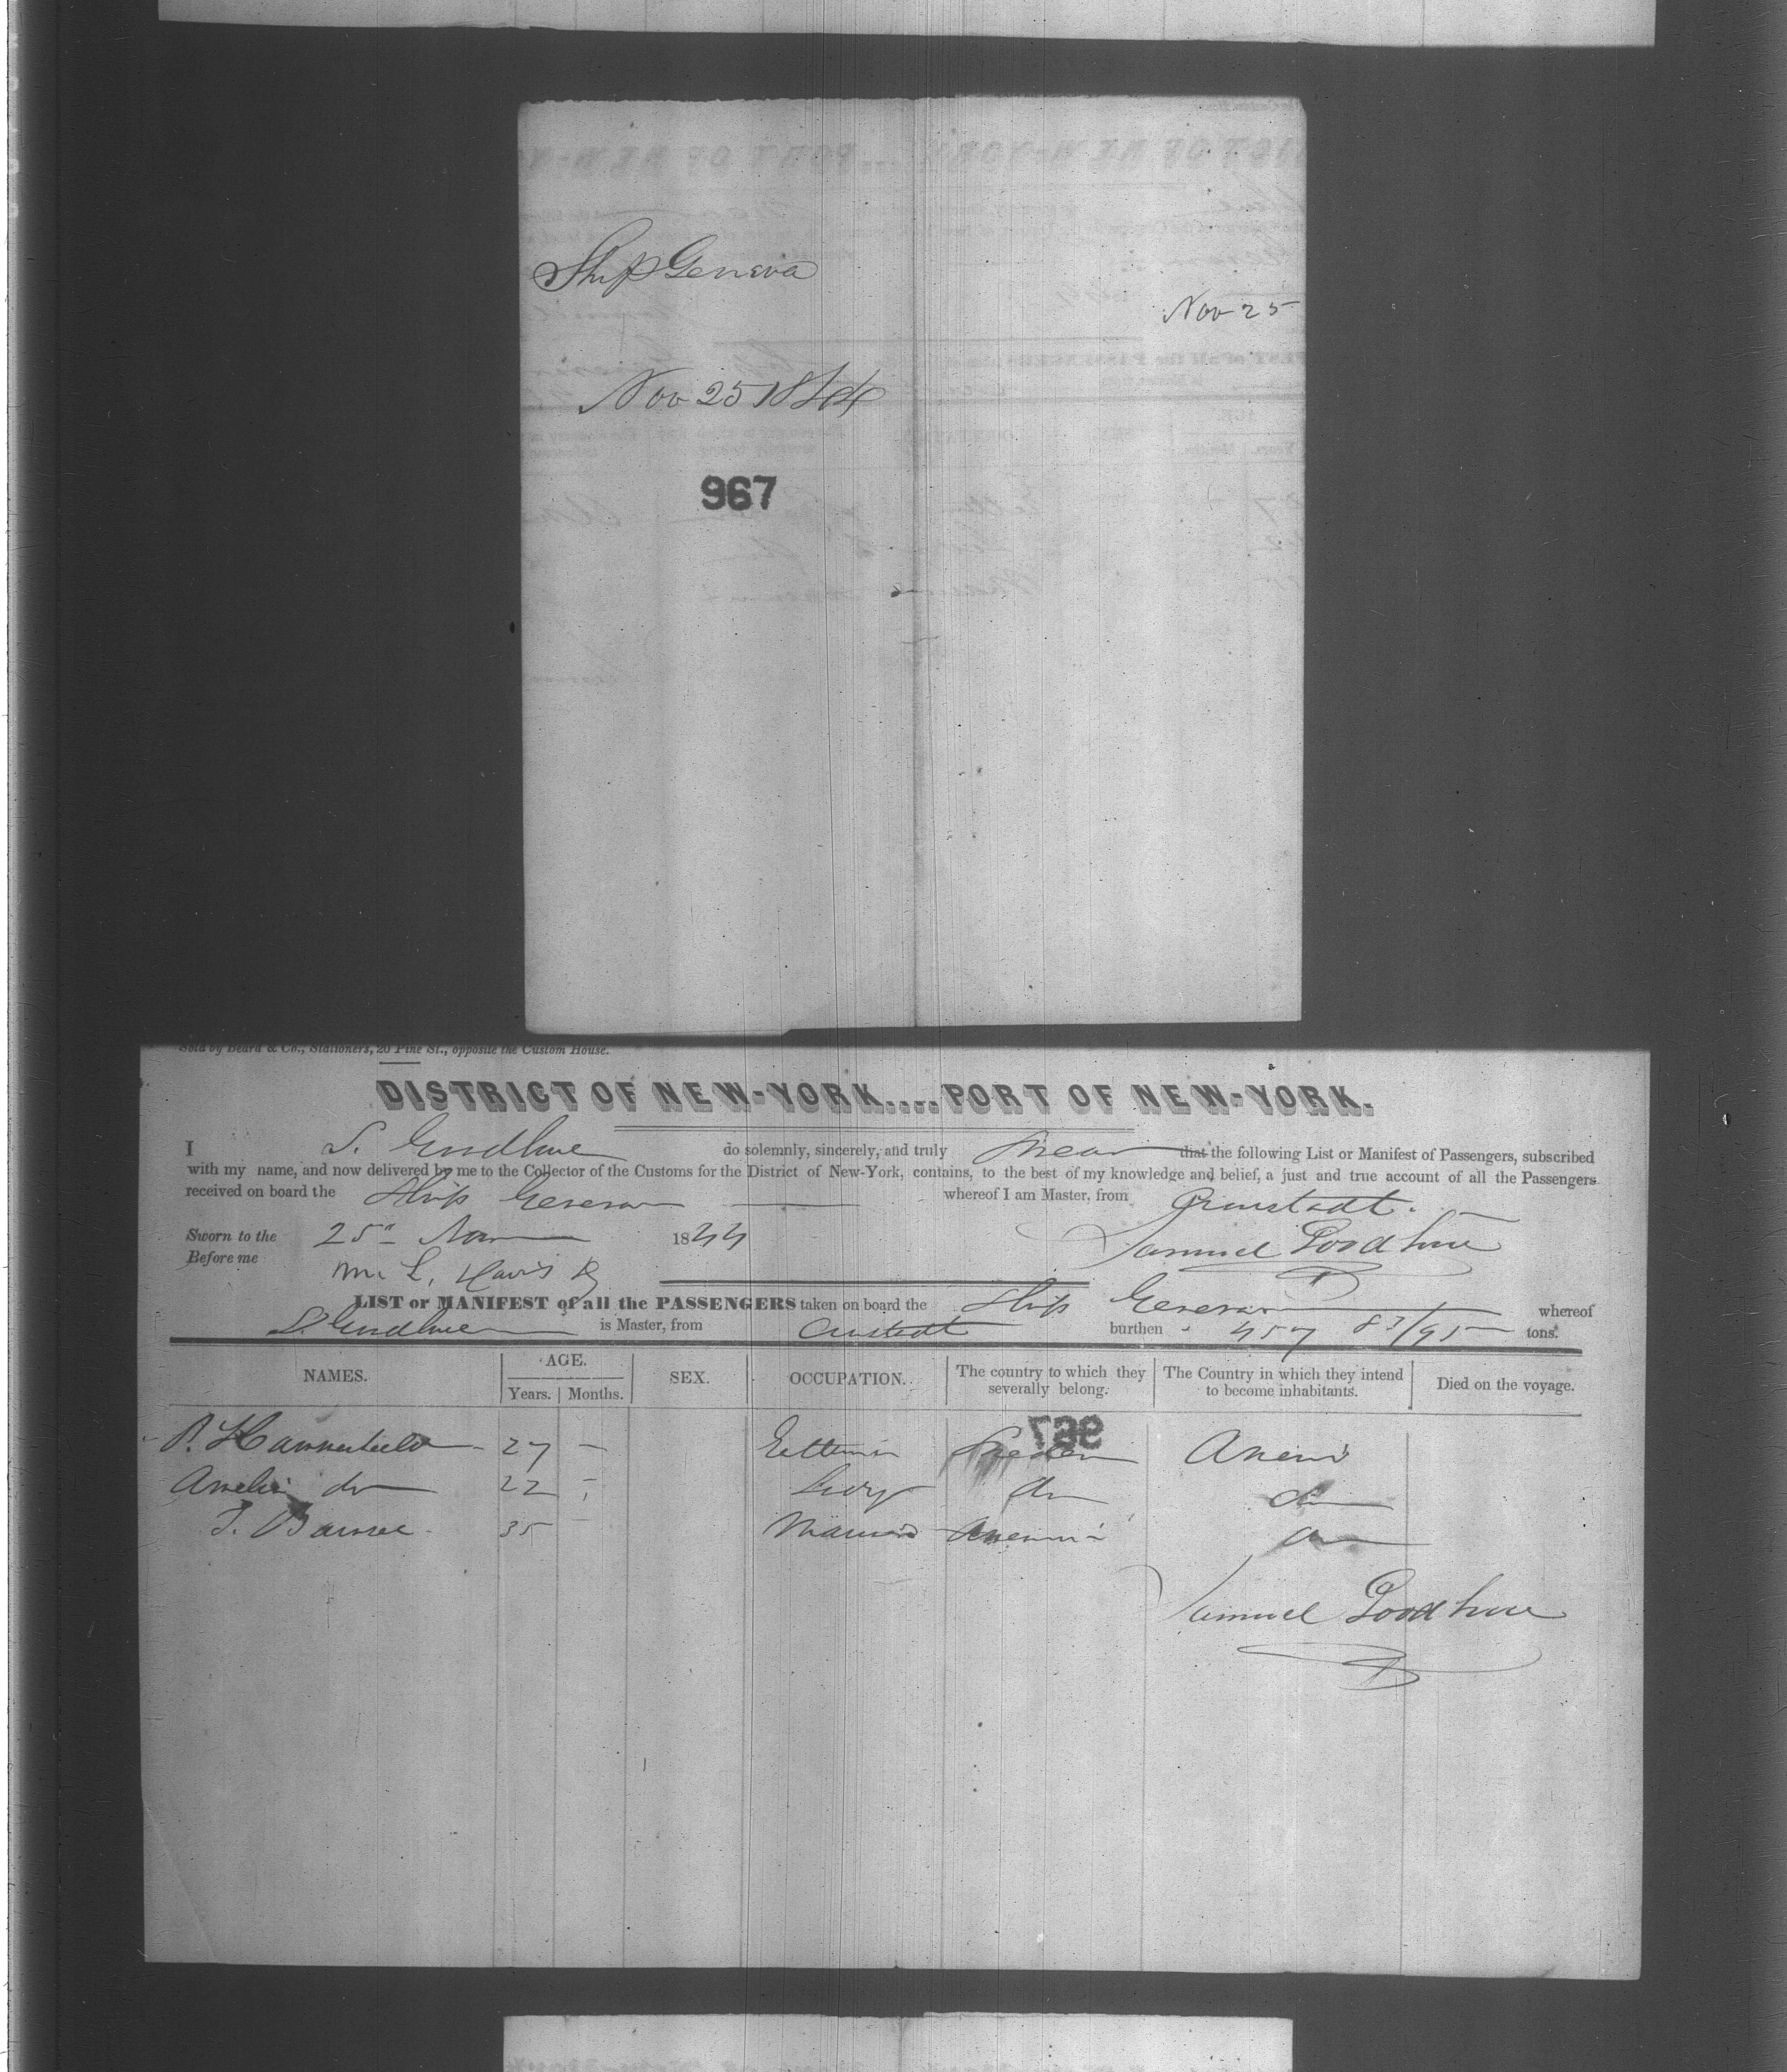 Ship Geneva
Nov 25
Nov 25 1844
967
Sold by Beard & Co., Stationers, 20 Pine St., opposite the Custom House.
DISTRICT OF NEW-YORK....PORT OF NEW-YORK.
I S. Goodhue do solemnly, sincerely, and truly swear that the following List or Manifest of Passengers, subscribed
with my name, and now delivered by me to the Collector of the Customs for the District of New-York, contains, to the best of my knowledge and belief, a just and true account of all the Passengers
received on board the Ship Geneva whereof I am Master, from
Sworn to the 25th Nov 1844 Samuel Goodhue
Before me
LIST or MANIFEST of all the PASSENGERS taken on board the Ship Geneva whereof
S. Goodhue is Master, from burthen 457 83/95 tons.
NAMES. AGE. SEX. OCCUPATION. The country to which they severally belong. The Country in which they intend to become inhabitants. Died on the voyage.
Years. Months.
967
P. 27 – Sweden
Amelia do 22 – Lady do do
35 – Mariner do
Samuel Goodhue